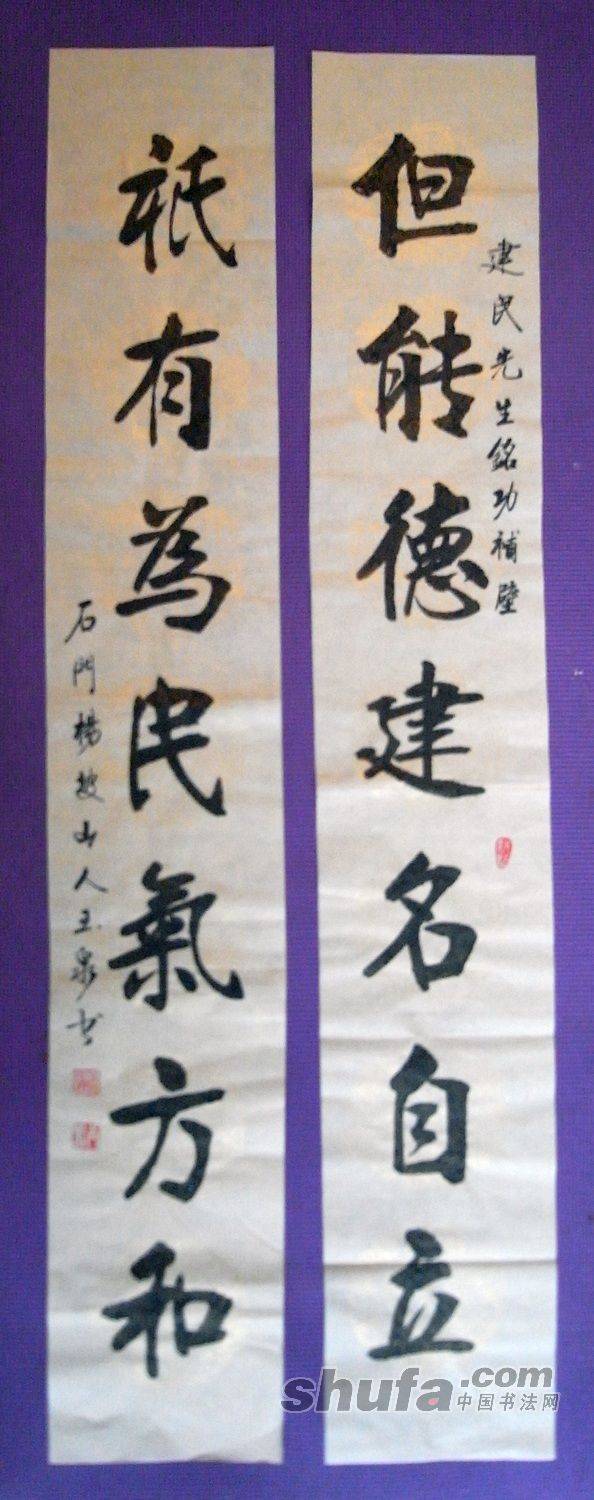 但能德建名自立
建民先生銘功補壁
祇有為民氣方和
石門楊坡山人王泉书
shufa.com
中国书法网